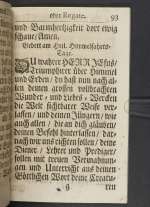 oder Rogate. 93
und Barmhertzigkeit dort ewig
schaue/Amen.
Gebett am Heil. Himmelfahrts-
Tage.
DU wahrer HERR JEsu
Triumphirer über Himmel
und Erden/ du hast nun nach al-
len deinen grossen vollbrachten
Wunder- und Liebes- Wercken
die Welt sichtbarer Weise ver-
lassen/ und deinen Jüngern/ wie
auch allen/ die an dich gläuben/
deinen Befehl hinterlassen/ dar-
nach wir uns richten sollen/ deine
Diener/ Lehrer und Prediger/
sollen mit treuen Vermahnun-
gen und Unterricht aus deinem
Göttlichen Wort deine Creatu-
g ren